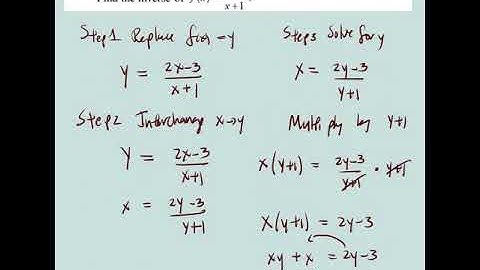 x+1
Step 1 Replace f(x) → y
y = 2x-3 / x+1
Step 2 Interchange x→y
y = 2x-3 / x+1
x = 2y-3 / y+1
Step 3 Solve for y
x = 2y-3 / y+1
Multiply by y+1
x(y+1) = 2y-3 / y+1 · y+1
x(y+1) = 2y-3
xy + x = 2y-3